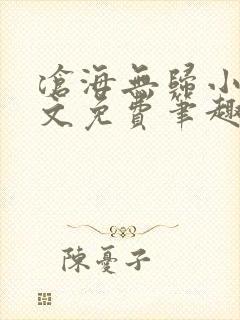 滄海無歸小
文免費筆趣
陳憂子